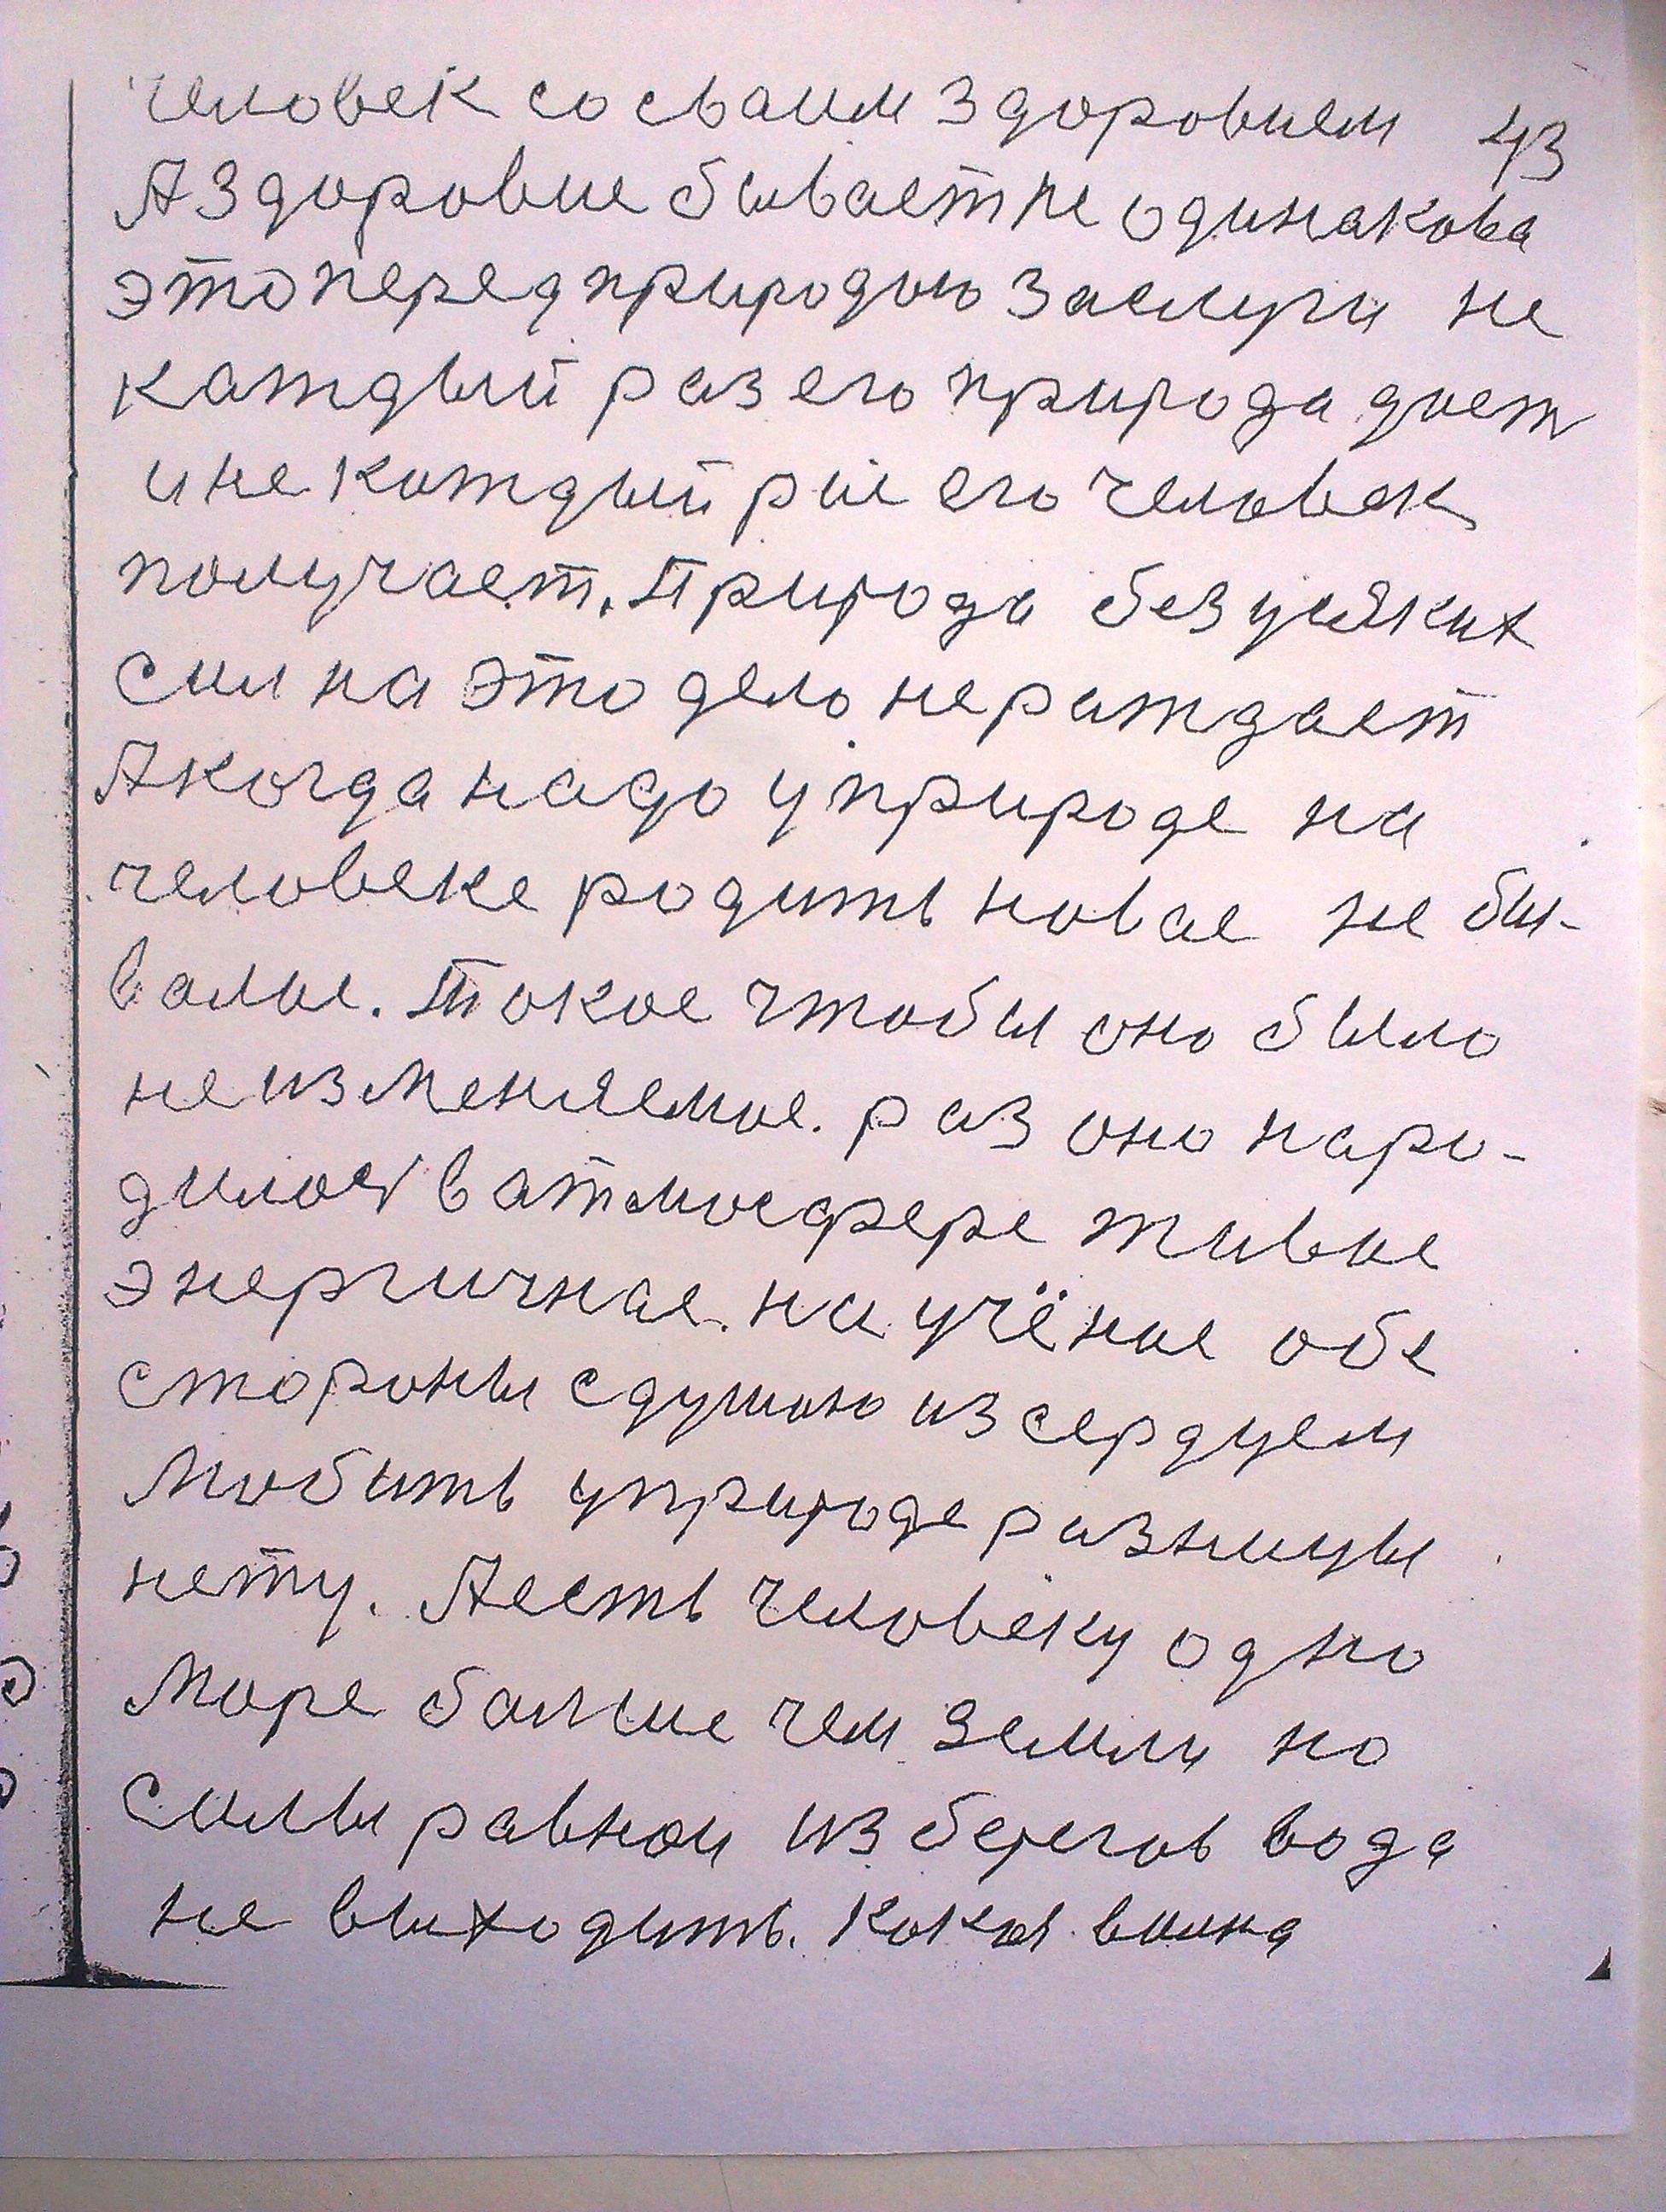 человек со сваим здоровием 43
А здоровие бывает не одинакова
это перед природою заслуги не
каждый раз его природа дает
и не каждый раз его человек
получает. Природа без усяких
сил на это дело не раждает
А когда надо у природе на
человеке родить новае не бы-
валое. Токое чтобы оно было
неизменяемое. раз оно наро-
дилося в атмосфере живое
энергичнае. на учёное обе
стороны с душою из сердцем
Любить у природе разницы
нету. А есть человеку одно
Море больше чем земли но
силы равнои из берегов вода
не выходить. Кокая